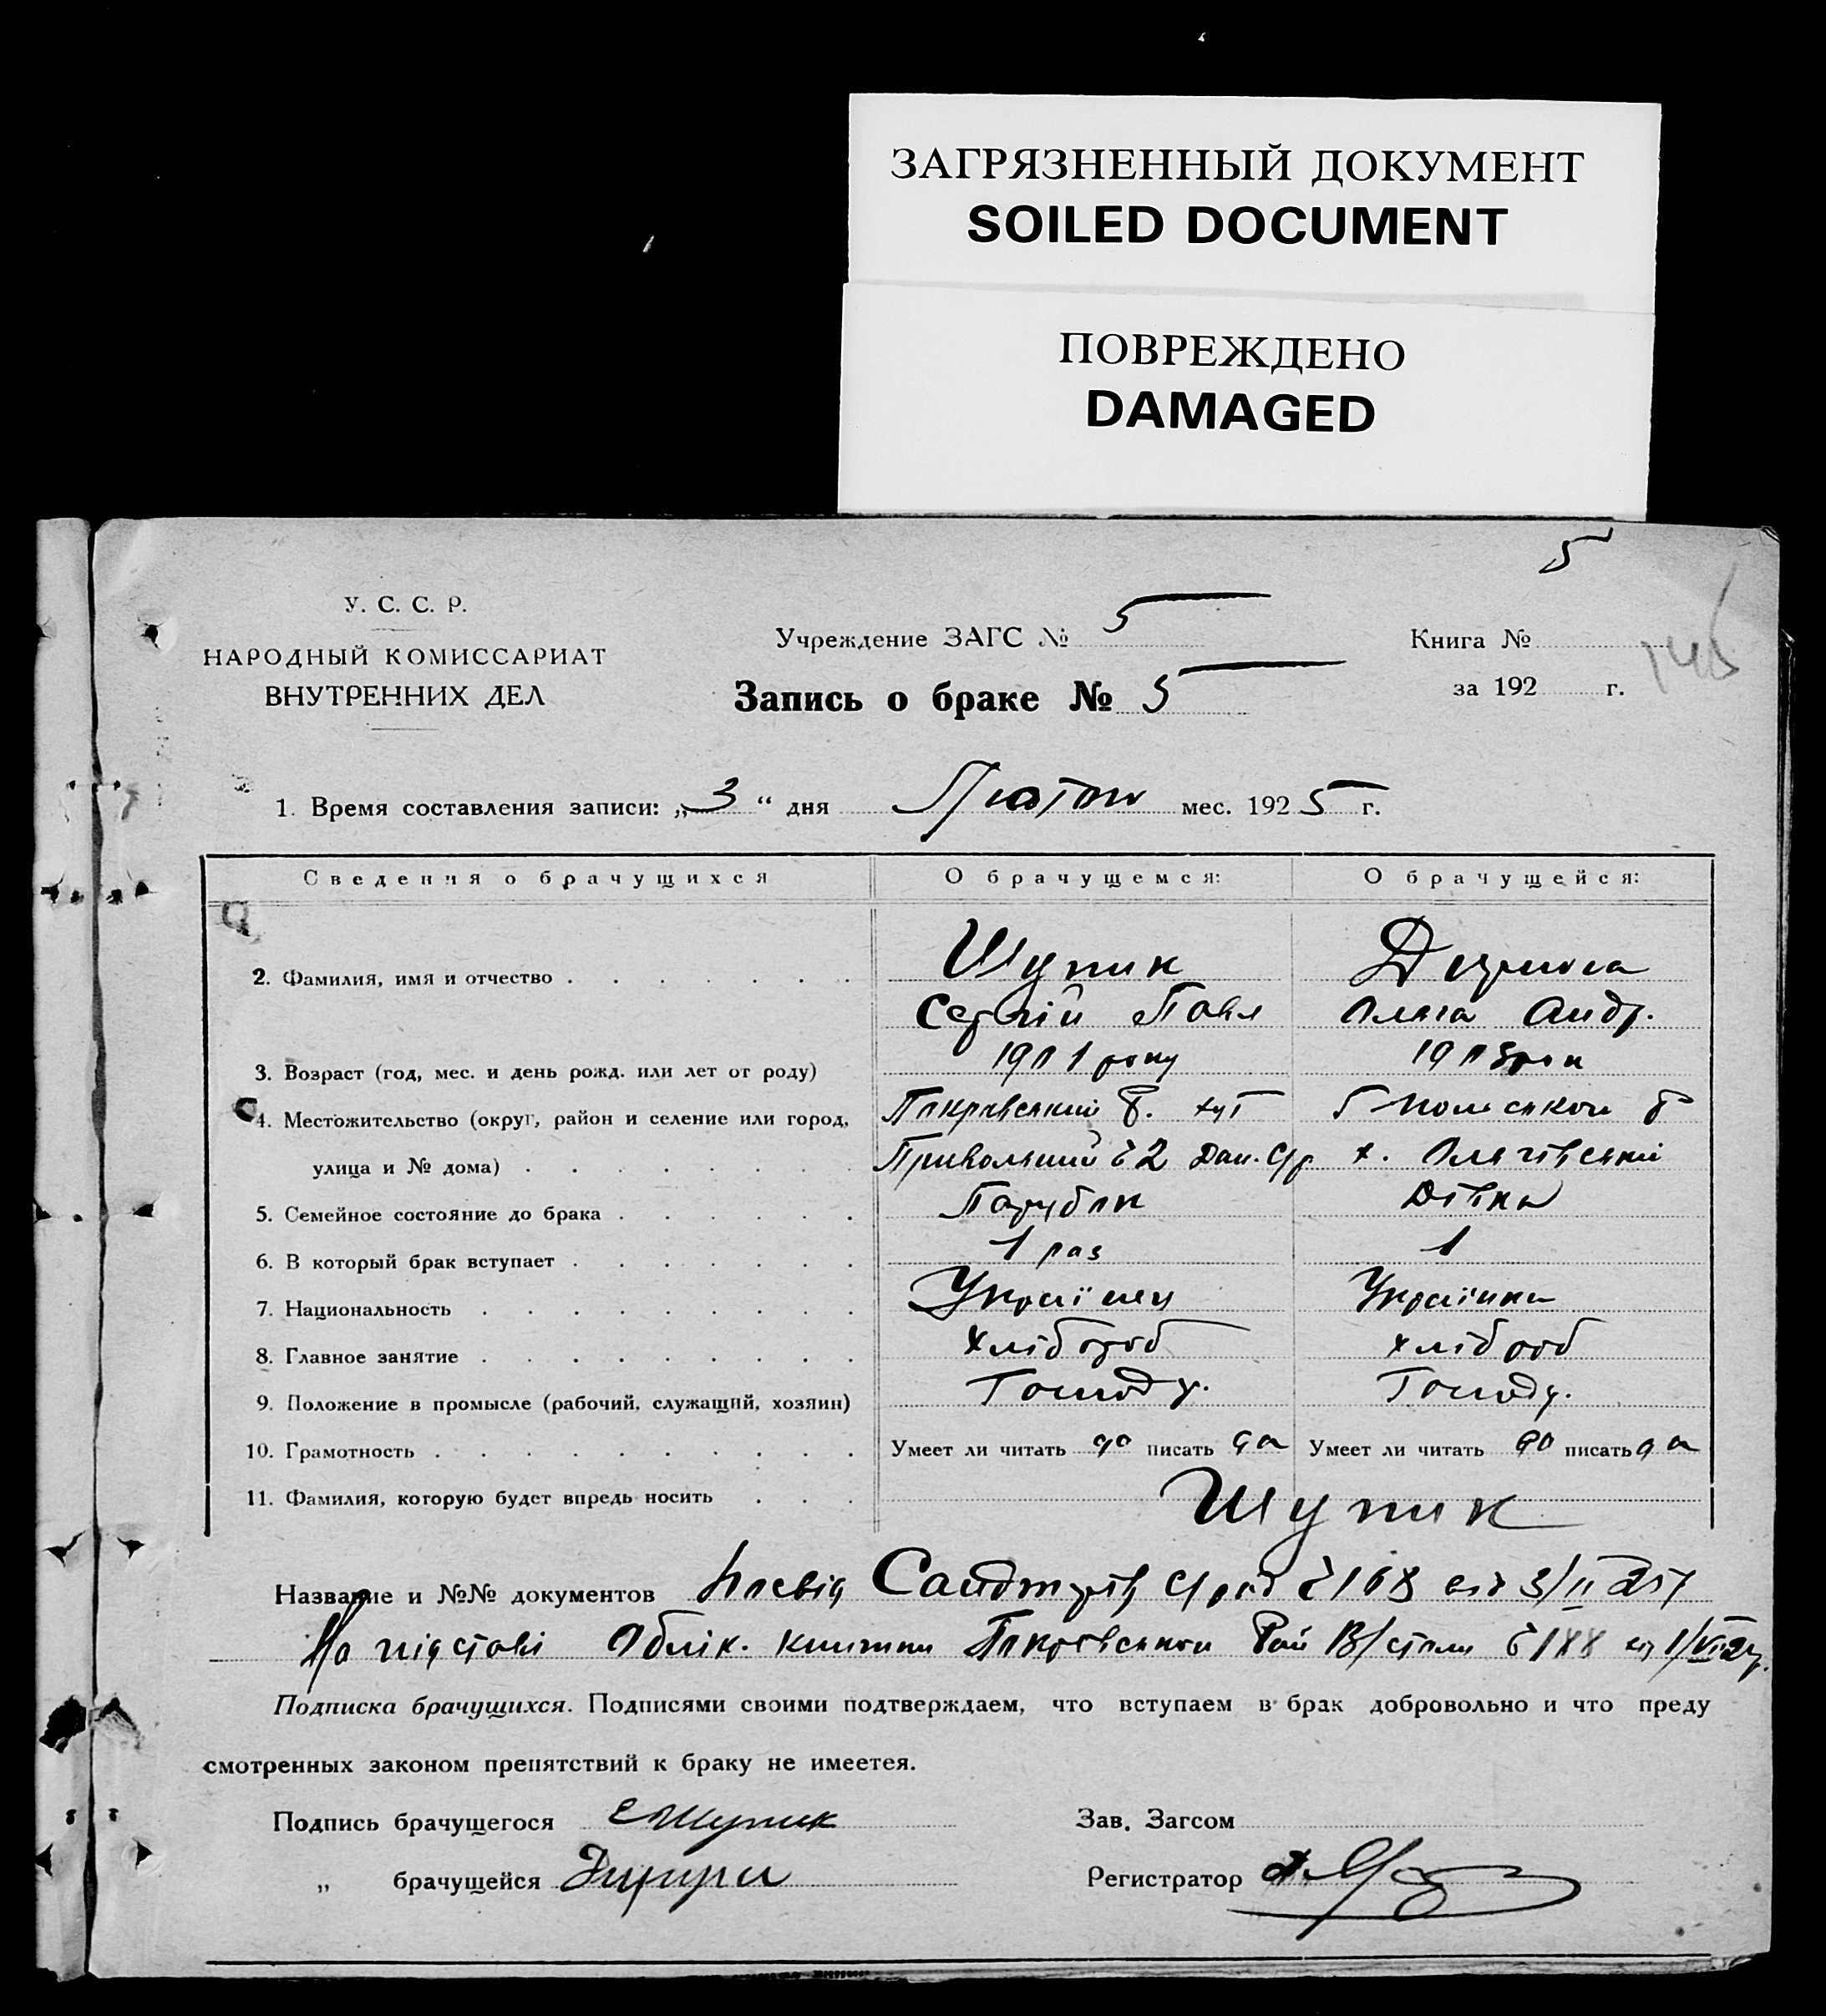 ЗАГРЯЗНЕННЫЙ ДОКУМЕНТ
SOILED DOCUMENT
ПОВРЕЖДЕНО
DAMAGED
5
У. С. С. Р.
НАРОДНЫЙ КОМИССАРИАТ
ВНУТРЕННИХ ДЕЛ
Учреждение ЗАГС № 5
Книга №
Запись о браке № 5
за 192 г.
1. Время составления записи: „3“ дня Лютого мес. 1925 г.
Сведения о брачущихся О брачущемся: О брачущейся:
2. Фамилия, имя и отчество Шупик
Сергій Павл Ольга Андр.
3. Возраст (год, мес. и день рожд. или лет от роду) 1901 року 1903 рок
4. Местожительство (округ, район и селение или город, Покровський Р. хут
улица и № дома) Привольний № 2 х. Ольгівський
5. Семейное состояние до брака Парубок Дівка
6. В который брак вступает 1 раз 1
7. Национальность Українец Українка
8. Главное занятие Хлібороб хлібороб
9. Положение в промысле (рабочий, служащий, хозяин) Господ. Господ.
10. Грамотность Умеет ли читать да писать да Умеет ли читать да писать да
11. Фамилия, которую будет впредь носить Шупик
Название и №№ документов Посвід
На підставі Облік. книжки Покровського Рай В/стола № 188
Подписка брачущихся. Подписями своими подтверждаем, что вступаем в брак добровольно и что преду
смотренных законом препятствий к браку не имеетея.
Подпись брачущегося С Шупик
Зав. Загсом
„ брачущейся
Регистратор